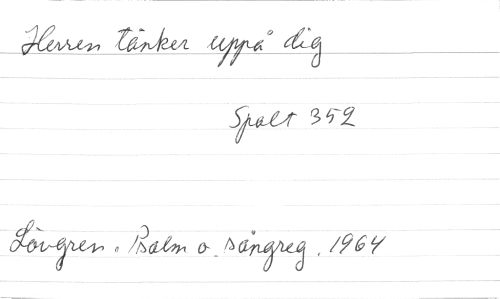 Herren tänker uppå dig
Spalt 352
Lövgren. Psalm o. sångreg. 1964